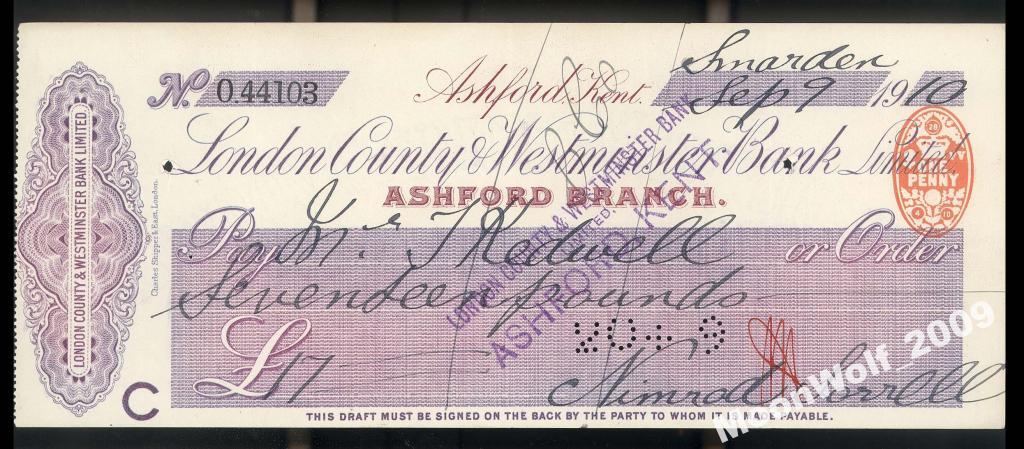 No. 0.44103
Ashford, Kent. Smarden
Sep 9 1910
London County & Westminster Bank Limited,
ASHFORD BRANCH.
Pay Mr T Kedwell or Order
Seventeen pounds
£17
Nimrod
THIS DRAFT MUST BE SIGNED ON THE BACK BY THE PARTY TO WHOM IT IS MADE PAYABLE.
C
LONDON COUNTY & WESTMINSTER BANK LIMITED.
Charles Skipper & East, London.
PENNY
LONDON COUNTY & WESTMINSTER BANK
LIMITED.
ASHFORD KENT
MoonWolf_2009